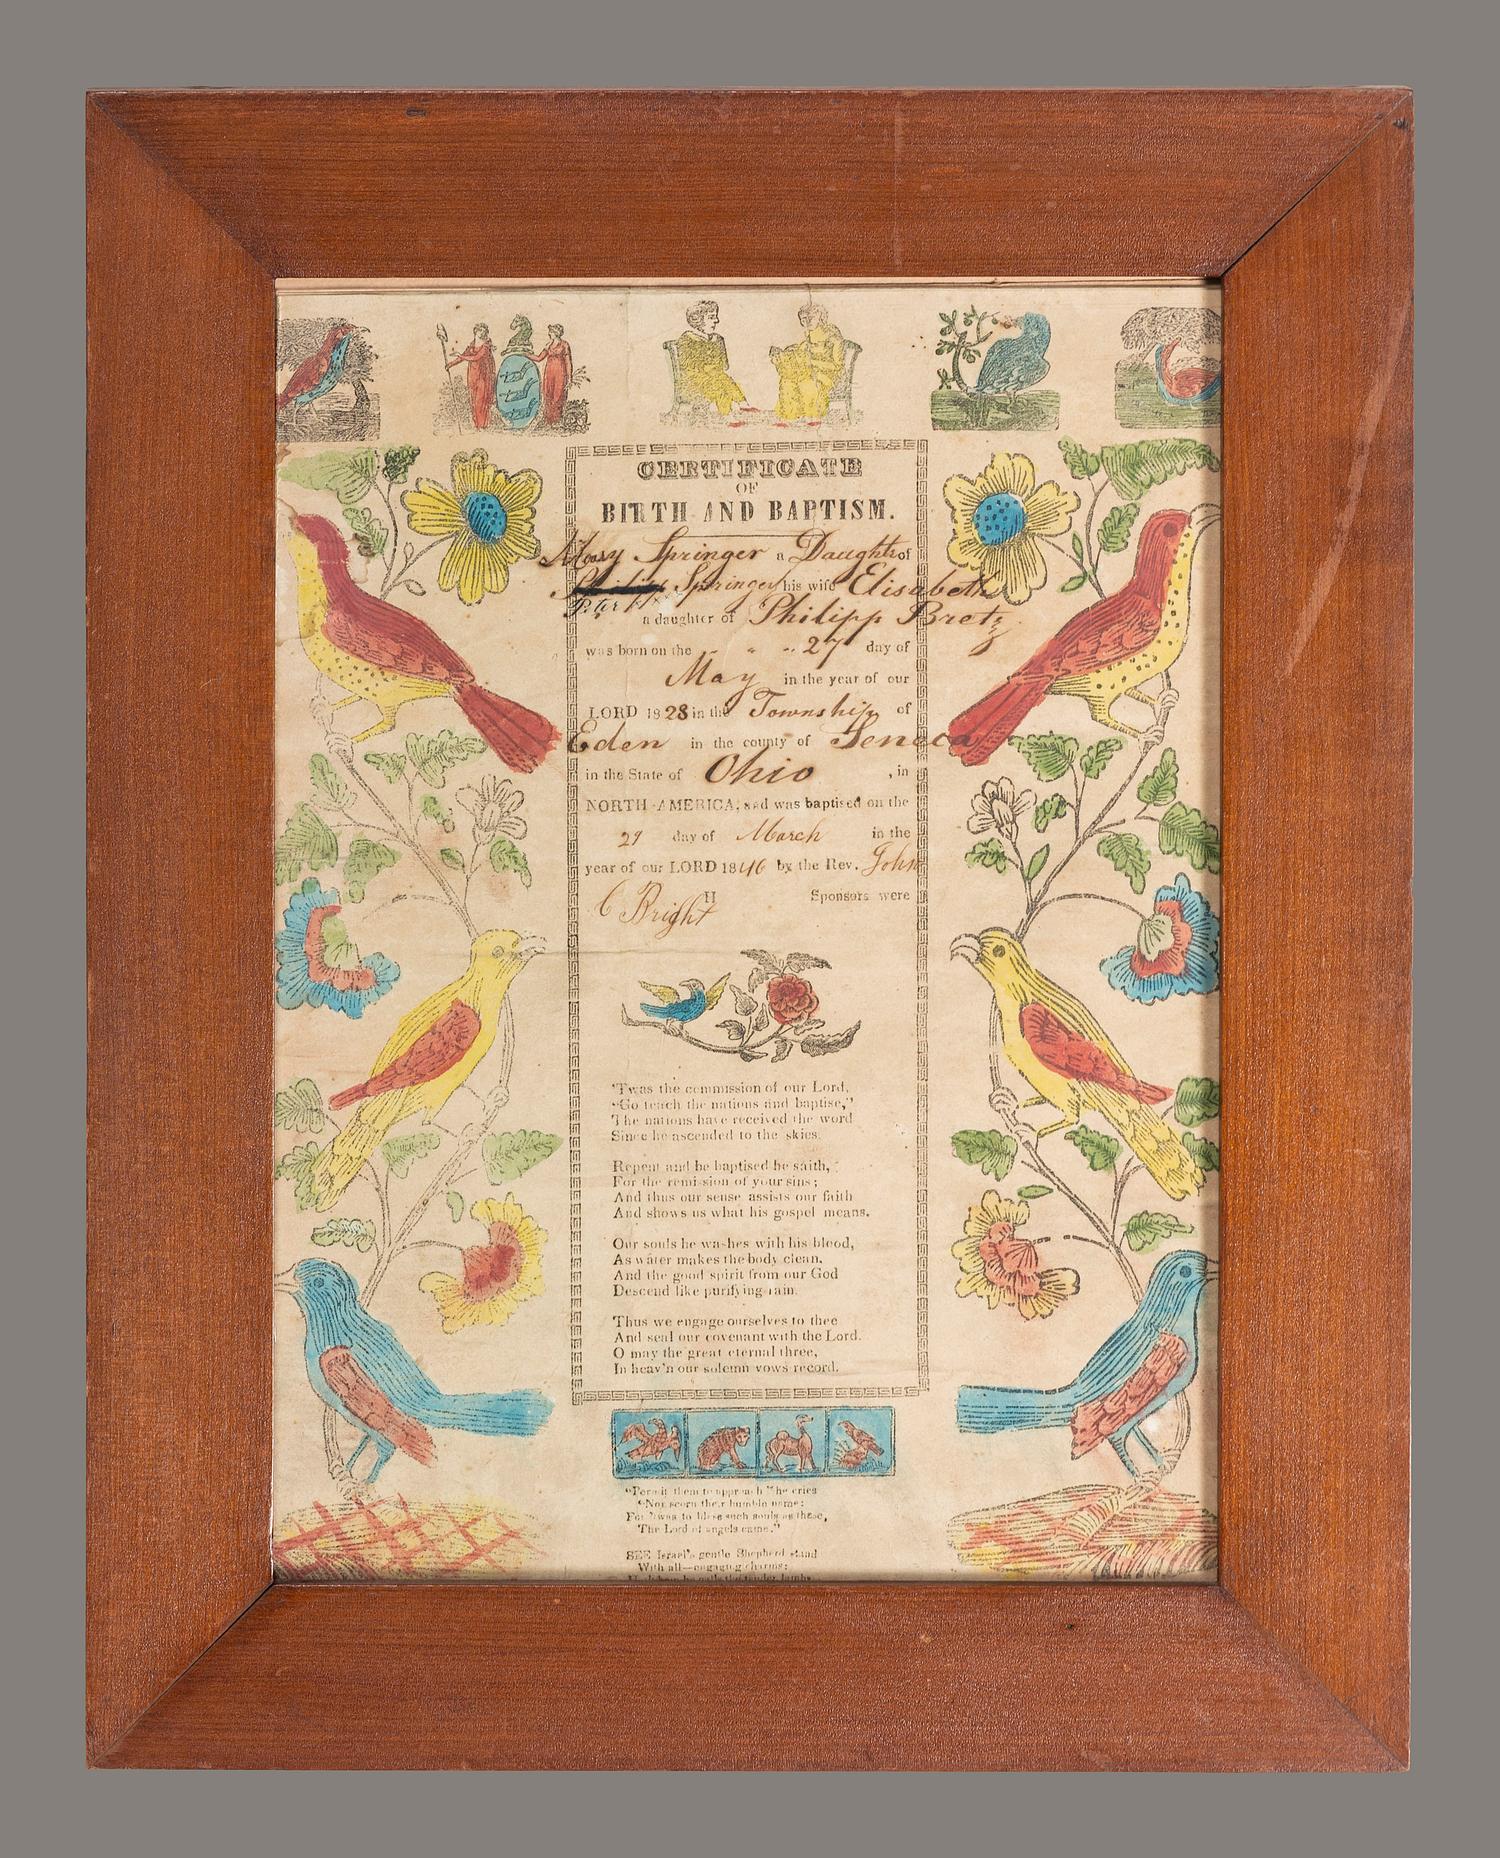 CERTIFICATE
OF
BIRTH AND BAPTISM.
Mary Springer a Daughter of
Springer his wife Elisabeth
Peter
a daughter of Philipp Bretz
was born on the " " " 27 day of
May in the year of our
LORD 1828 in the Township of
Eden in the county of Seneca
in the State of Ohio , in
NORTH-AMERICA, and was baptised on the
29 day of March in the
year of our LORD 1846 by the Rev. John
C Bright H Sponsors were
'Twas the commission of our Lord,
"Go teach the nations and baptise,"
The nations have received the word
Since he ascended to the skies.
Repent and be baptised he saith,
For the remission of your sins;
And thus our sense assists our faith
And shows us what his gospel means.
Our souls he washes with his blood,
As water makes the body clean,
And the good spirit from our God
Descend like purifying rain.
Thus we engage ourselves to thee
And seal our covenant with the Lord.
O may the great eternal three,
In heav'n our solemn vows record.
"Permit them to approach" he cries
"Nor scorn their humble name;
For 'twas to bless such souls as these,
The Lord of angels came."
SEE Israel's gentle Shepherd stand
With all—engaging charms;